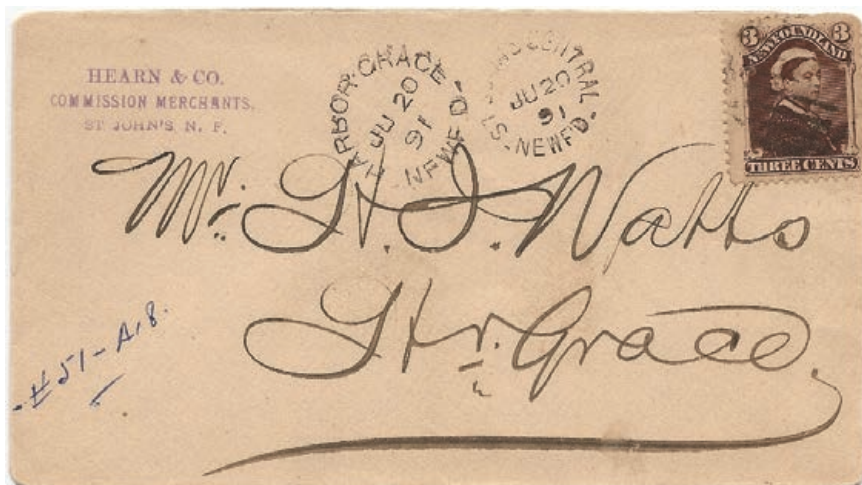 HEARN & CO.
COMMISSION MERCHANTS.
ST JOHN'S, N. F.
HARBOR·GRACE
JU 20
91
NEWF'D
CENTRAL
JU 20
91
NEWF'D
3 3
NEWFOUNDLAND
THREE CENTS
Mr. H. J. Watts
Hr. Grace
#51-A18.